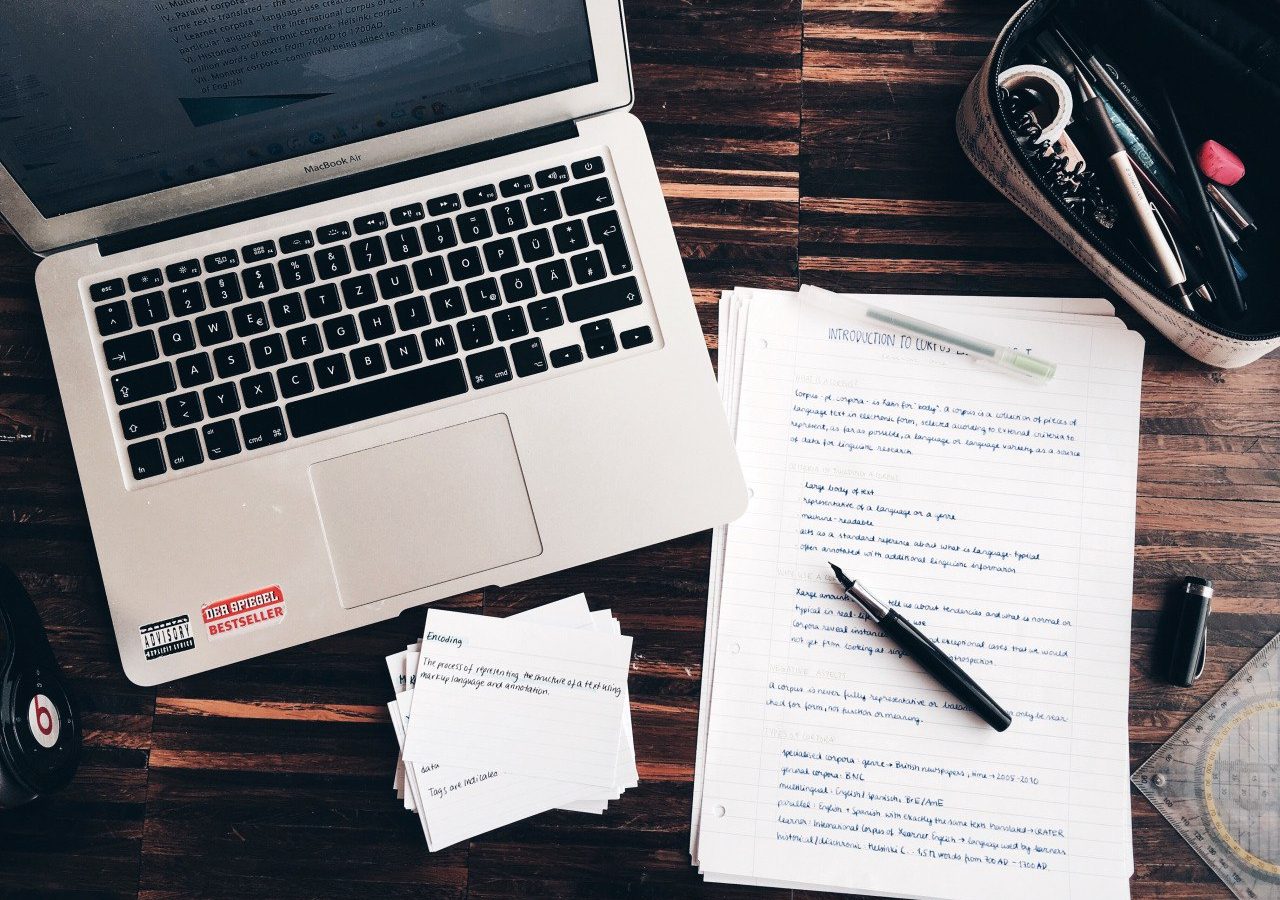 III. Mult
IV. Parallel corpora
same texts translated - the C
V. Learner corpora - language use create
particular language - the International Corpus of L
VI. Historical or Diachronic corpora. Helsinki corpus - 1.5
million words of texts from 700AD to 1700AD.
VII. Monitor corpora - continually being added to: the Bank
of English
MacBook Air
esc
! 1 " 2 § 3 $ 4 % 5 & 6 / 7 ( 8 ) 9 = 0 ? ß
Q W E € R T Z U I O P Ü * +
A S D F G H J K L Ö Ä #
> < Y X C V B N M ; , : . _ -
fn ctrl alt cmd cmd alt
ADVISORY
EXPLICIT LYRICS
DER SPIEGEL
BESTSELLER
b
Encoding
The process of representing the structure of a text using
markup language and annotation.
data
Tags are indicated
INTRODUCTION TO CORPUS
WHAT IS A CORPUS?
Corpus - pl. corpora - is latin for "body". A corpus is a collection of pieces of
language text in electronic form, selected according to external criteria to
represent, as far as possible, a language or language variety as a source
of data for linguistic research.
large body of text
representative of a language or a genre
machine-readable
acts as a standard reference about what is language-typical
often annotated with additional linguistic information
WHY USE A
Large amounts tell us about tendencies and what is normal or
typical in real-life use
Corpora reveal instances and exceptional cases that we would
not get from looking at single introspection.
NEGATIVE ASPECTS
A corpus is never fully representative or balanced only be sear
ched for form, not function or meaning.
TYPES OF CORPORA
specialised corpora: genre → British newspapers, time → 2005-2010
general corpora: BNC
multilingual: English/Spanish, BrE/AmE
parallel: English + Spanish with exactly the same texts translated → CRATER
learner: International Corpus of Learner English → language used by learners
historical/diachronic: Helsinki C... 1,5 M words from 700 AD - 1700 AD